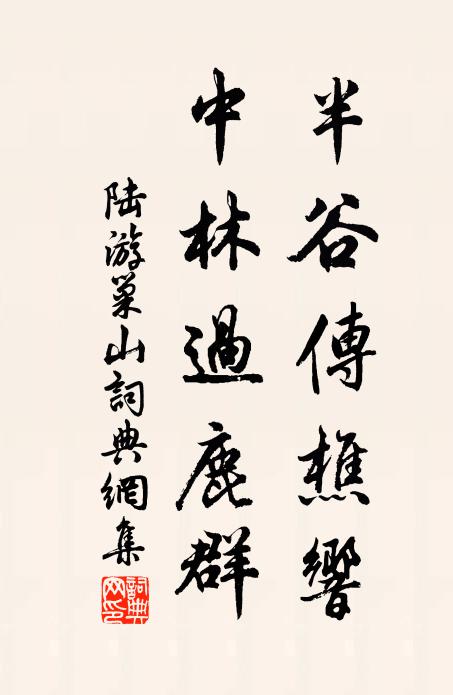 半谷傳樵響
中林過鹿群
陸游巢山詞典網集
詞典网印